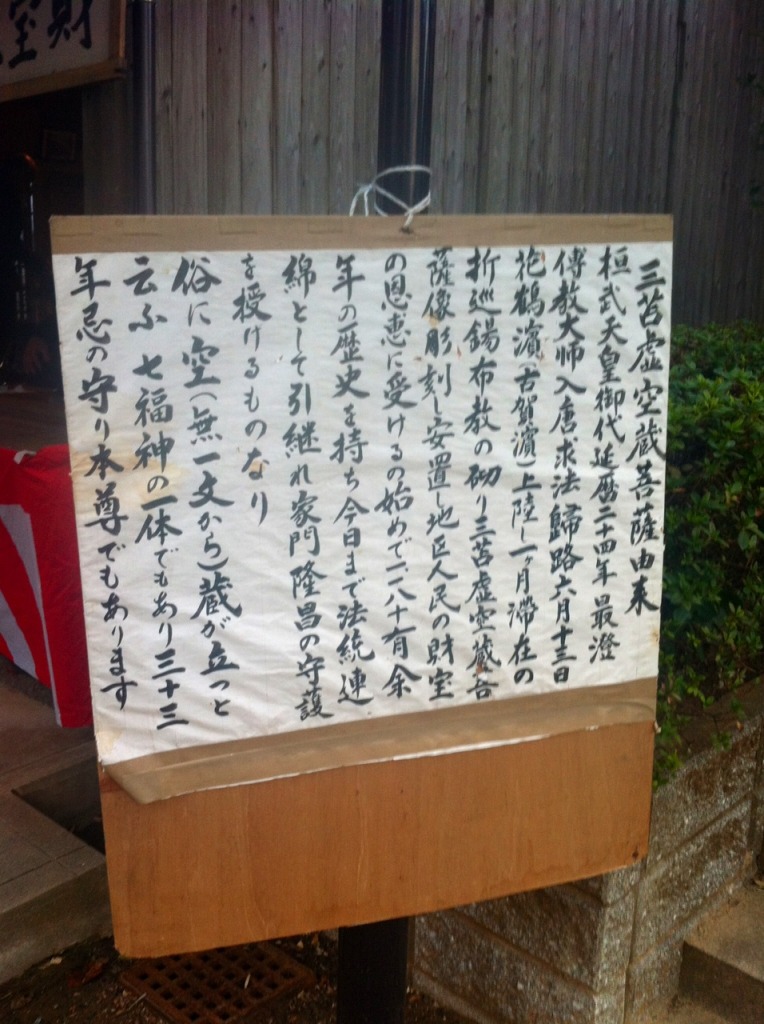 三苫虚空蔵菩薩由来
桓武天皇御代延暦二十四年最澄
傳教大师入唐求法歸路六月十三日
花鶴濱(古賀濱)上陸し一ヶ月滞在の
折巡錫布教の砌り三苫虚空蔵菩
薩像彫刻し安置し地区人民の財宝
の恩恵に受けるの始めで一、一八十有余
年の歴史を持ち今日まで法統連
綿として引継れ家門隆昌の守護
を授けるものなり
俗に空(無一文から)蔵が立つと
云ふ七福神の一体でもあり三十三
年忌の守り本尊でもあります
財
宝